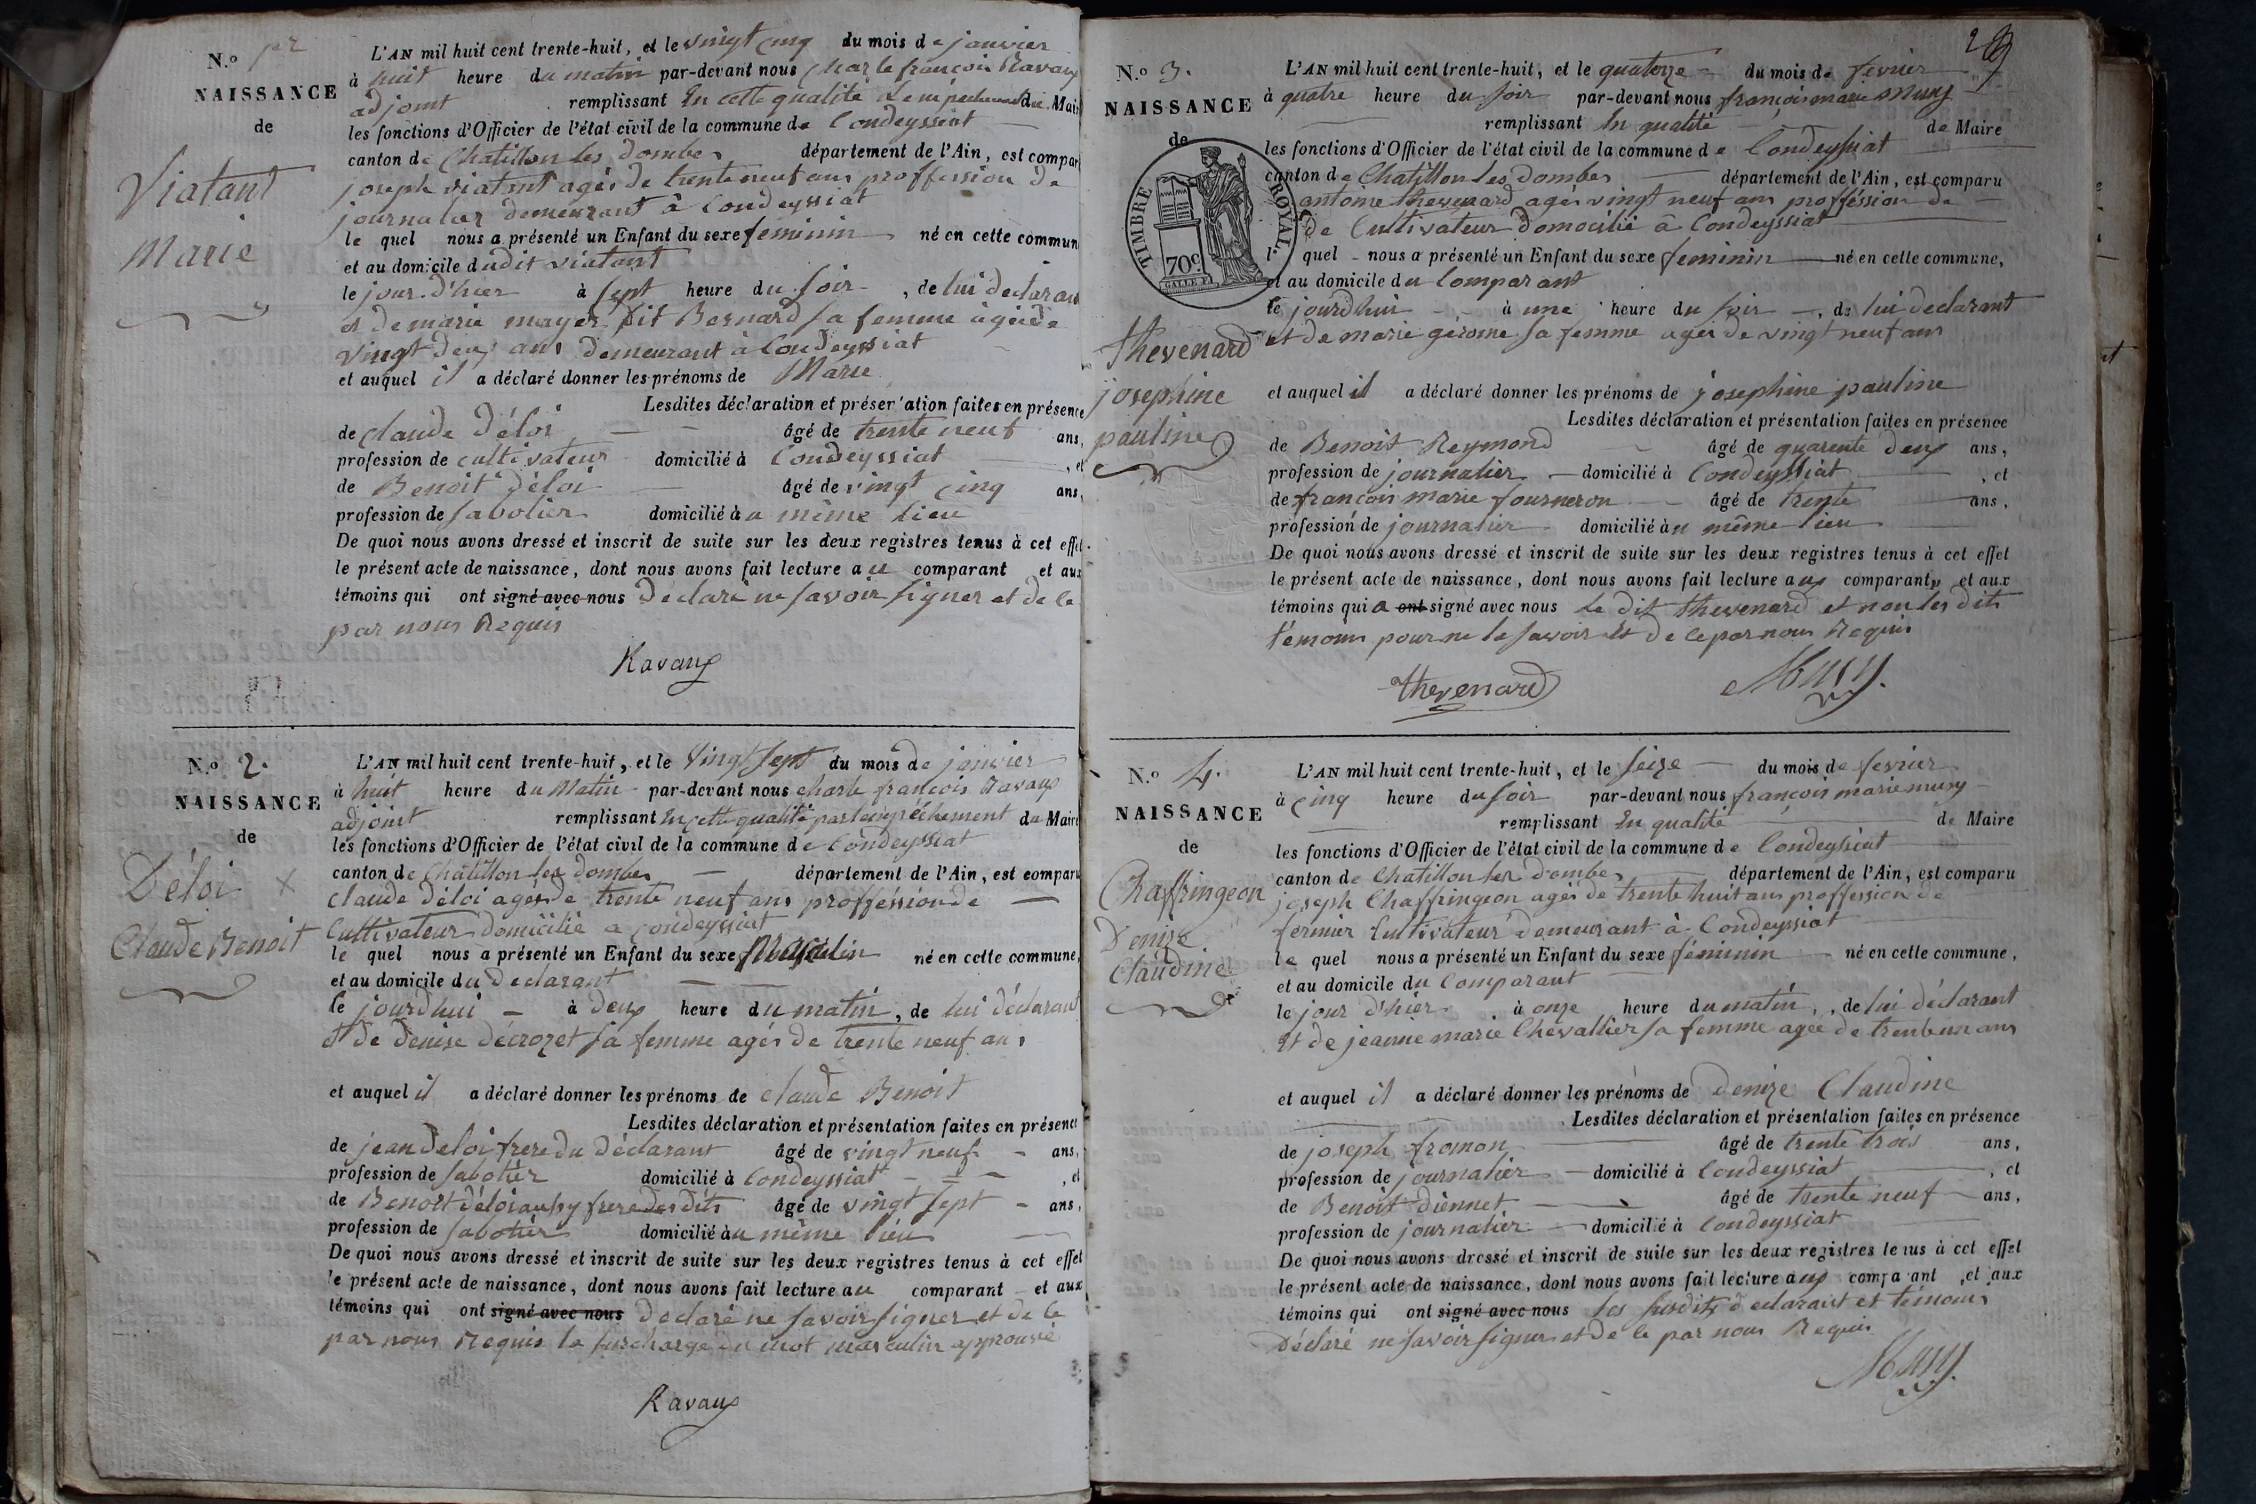 N.o 1er
NAISSANCE
de
Viatant
Marie
L'AN mil huit cent trente-huit, et le vingt cinq du mois de janvier
à huit heure du matin par-devant nous Charle françois Ravaux
adjoint remplissant En cette qualité du Mair
les fonctions d'Officier de l'état civil de la commune de Condeyssiat
canton de Chatillon les dombes département de l'Ain, est compar
joseph viatant agés de trente neuf ans proffession de
journalier demeurant à Condeyssiat
le quel nous a présenté un Enfant du sexe feminin né en cette commun
et au domicile dudit viatant
le jour d'hier à sept heure du soir, de lui declarant
et de marie mayer dit Bernard sa femme agée de
vingt deux ans demeurant à Condeyssiat
et auquel il a déclaré donner les prénoms de Marie
Lesdites déclaration et présentation faites en présence
de claude Déloi âgé de trente neuf ans,
profession de cultivateur domicilié à Condeyssiat, et
de Benoit Déloi âgé de vingt cinq ans,
profession de sabotier domicilié au même lieu
De quoi nous avons dressé et inscrit de suite sur les deux registres tenus à cet effet
le présent acte de naissance, dont nous avons fait lecture au comparant et aux
témoins qui ont signé avec nous Declaré ne savoir signer et de ce
par nous Requis
Ravaux
N.o 2.
NAISSANCE
de
Déloi X
Claude Benoit
L'AN mil huit cent trente-huit, et le Vingt sept du mois de janvier
à huit heure du Matin par-devant nous charle françois Ravaux
adjoint remplissant En cette qualité par lempéchement du Maire
les fonctions d'Officier de l'état civil de la commune de Condeyssiat
canton de Chatillon les dombes département de l'Ain, est comparu
claude Déloi agés de trente neuf ans proffession de
Cultivateur domicilié a Condeyssiat
le quel nous a présenté un Enfant du sexe Masculin né en cette commune,
et au domicile du Declarant
le jourdhui à deux heure du matin, de lui déclarant
et de Denise Décrozet sa femme agés de trente neuf ans
et auquel il a déclaré donner les prénoms de claude Benoit
Lesdites déclaration et présentation faites en présence
de jean Deloi frere du Déclarant âgé de vingt neuf ans,
profession de sabotier domicilié à Condeyssiat, et
de Benoit déloi aussy frere des dits âgé de vingt sept ans,
profession de sabotier domicilié au même lieu
De quoi nous avons dressé et inscrit de suite sur les deux registres tenus à cet effet
le présent acte de naissance, dont nous avons fait lecture au comparant et aux
témoins qui ont signé avec nous Declaré ne savoir signer et de ce
par nous Requis la surcharge du mot masculin approuvé
Ravaux
29
N.o 3.
NAISSANCE
de
TIMBRE ROYAL.
70c
thevenard
josephine
pauline
L'AN mil huit cent trente-huit, et le quatorze du mois de fevrier
à quatre heure du soir par-devant nous françois marie Muny
remplissant En qualité de Maire
les fonctions d'Officier de l'état civil de la commune de Condeyssiat
canton de Chatillon les dombes département de l'Ain, est comparu
antoine thevenard agés vingt neuf ans proffession de
de Cultivateur Domocilié à Condeyssiat
l quel nous a présenté un Enfant du sexe feminin né en cette commune,
et au domicile du Comparant
le jourdhui à une heure du soir, de lui declarant
et de marie gerome sa femme agés de vingt neuf ans
et auquel il a déclaré donner les prénoms de josephine pauline
Lesdites déclaration et présentation faites en présence
de Benoit Reymond âgé de quarente deux ans,
profession de journalier domicilié à Condeyssiat, et
de françois marie fourneron âgé de trente ans,
profession de journalier domicilié au même lieu
De quoi nous avons dressé et inscrit de suite sur les deux registres tenus à cet effet
le présent acte de naissance, dont nous avons fait lecture aux comparants et aux
témoins qui a ont signé avec nous le dit thevenard et non les dits
témoins pour ne le savoir et de ce par nous Requis
thevenard Muny
N.o 4.
NAISSANCE
de
Chaffringeon
Denize
Claudine
L'AN mil huit cent trente-huit, et le seize du mois de fevrier
à cinq heure du soir par-devant nous françois marie muny
remplissant En qualité de Maire
les fonctions d'Officier de l'état civil de la commune de Condeyssiat
canton de Chatillon les dombes département de l'Ain, est comparu
joseph Chaffringeon agés de trente huit ans proffession de
fermier Cultivateur demeurant à Condeyssiat
le quel nous a présenté un Enfant du sexe féminin né en cette commune,
et au domicile du Comparant
le jour d'hier à onze heure du matin, de lui déclarant
et de jeanne marie Chevallier sa femme agée de trente un ans
et auquel il a déclaré donner les prénoms de Denize Claudine
Lesdites déclaration et présentation faites en présence
de joseph fromon âgé de trente trois ans,
profession de journalier domicilié à Condeyssiat, et
de Benoit Diennet âgé de trente neuf ans,
profession de journalier domicilié à Condeyssiat
De quoi nous avons dressé et inscrit de suite sur les deux registres tenus à cet effet
le présent acte de naissance, dont nous avons fait lecture aux comparant, et aux
témoins qui ont signé avec nous les susdits declarant et témoins
Déclaré ne savoir signer et de ce par nous Requis
Muny